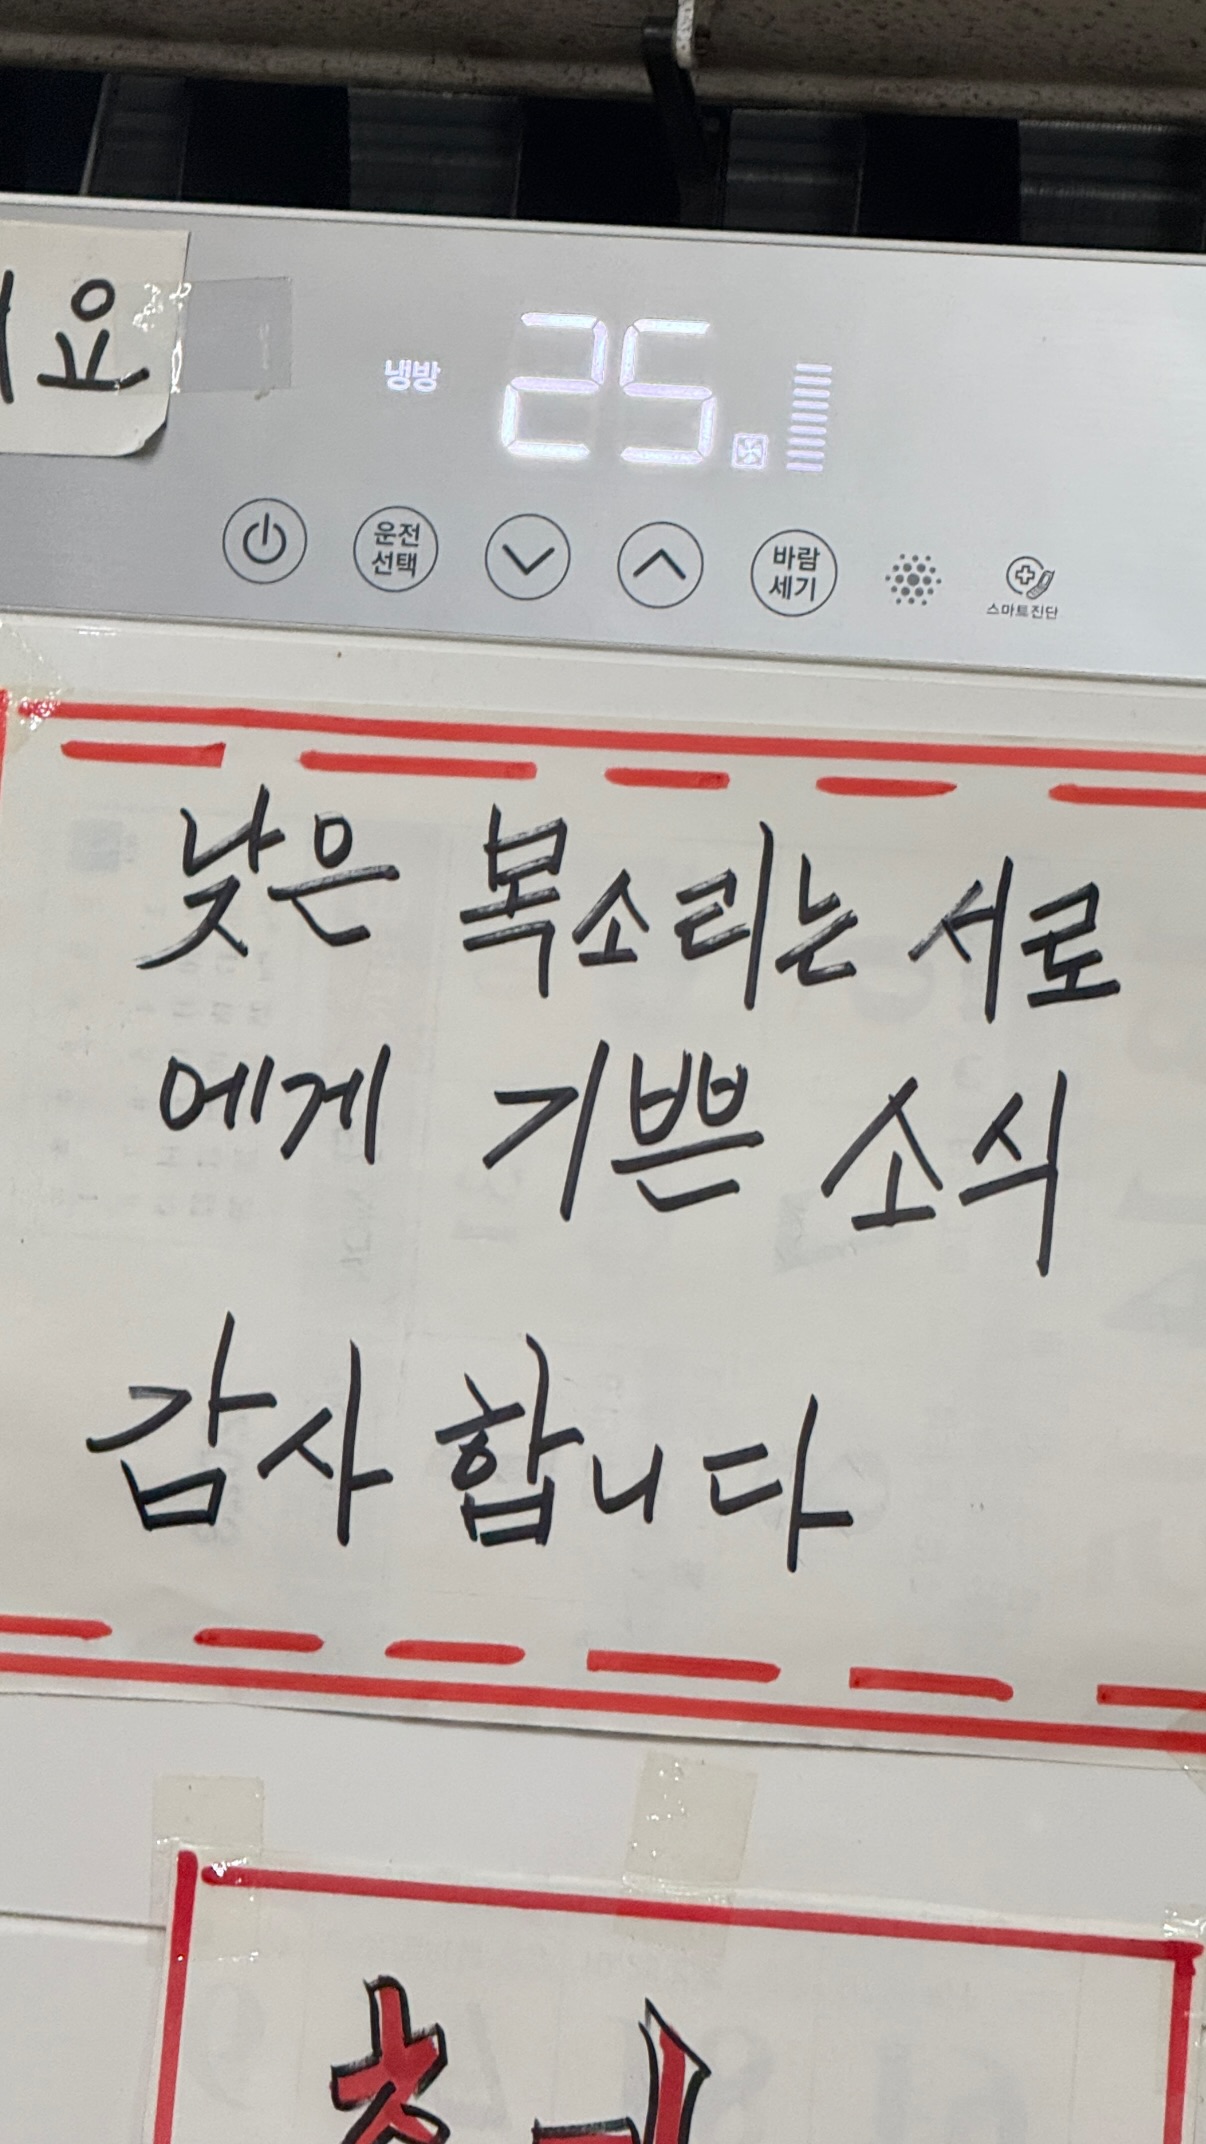 요
냉방 25.
운전
선택
바람
세기
스마트진단
낮은 복소리는 서로
에게 기쁜 소식
감사합니다